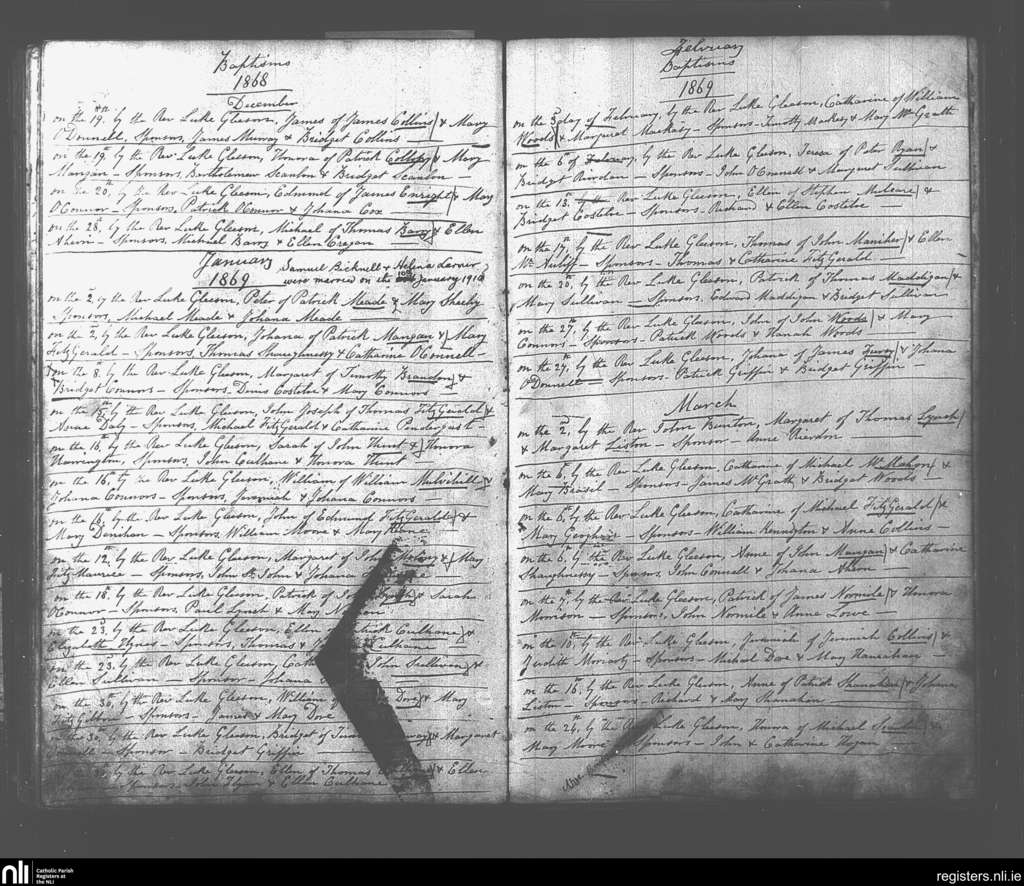 Baptisms
1868
December
on the 19th, by the Rev Luke Gleeson, James of James Collins & Mary
O'Donnell, Sponsors, James Murray & Bridget Collins
on the 19th by the Rev Luke Gleeson, Honora of Patrick & Mary
Mangan - Sponsors, Bartholemew Scanlon & Bridget Scanlon
on the 20, by the Rev Luke Gleeson, Edmund of James Enright & Mary
O'Connor - Sponsors, Patrick O'Connor & Johana Cox
on the 28, by the Rev Luke Gleeson, Michael of Thomas Barry & Ellen
Ahern - Sponsors, Michael Barry & Ellen
January
1869
Samuel Bicknell & Helena
were married on the 10th January 1910
on the 2, by the Rev Luke Gleeson, Peter of Patrick Meade & Mary Sheehy
Sponsors, Michael Meade & Johana Meade
on the 2, by the Rev Luke Gleeson, Johana of Patrick Mangan & Mary
FitzGerald - Sponsors, Thomas Shaughnessy & Catharine O'Connell
on the 8, by the Rev Luke Gleeson, Margaret of Timothy & 
Bridget Connors - Sponsors, Denis Costiloe & Mary Connors
on the 15, by the Rev Luke Gleeson, John Joseph of Thomas FitzGerald &
Anne Daly - Sponsors, Michael FitzGerald & Catharine Pendergast
on the 16, by the Rev Luke Gleeson, Sarah of John & Honora
Harrington, Sponsors, John Culhane & Honora
on the 16, by the Rev Luke Gleeson, William of William Mulvihill &
Johana Connors - Sponsors, Jeremiah & Johana Connors
on the 16, by the Rev Luke Gleeson, John of Edmund FitzGerald &
Mary Denihan - Sponsors, William Moore & Mary
on the 12, by the Rev Luke Gleeson, Margaret of John & Mary
FitzMaurice - Sponsors, John St John & Johana
on the 18, by the Rev Luke Gleeson, Patrick of & Sarah
O'Connor - Sponsors, Paul Lynch & Mary
on the 23, by the Rev Luke Gleeson, Ellen Culhane &
Elizabeth Hynes - Sponsors, Thomas & Culhane
on the 23, by the Rev Luke Gleeson, John Sullivan &
Ellen Sullivan - Sponsor - Johana
on the 30, by the Rev Luke Gleeson, William Dore & Mary
FitzGibbon - Sponsors - James & Mary Dore
the 30, by the Rev Luke Gleeson, Bridget of & Margaret
- Sponsor - Bridget Griffin
by the Rev Luke Gleeson, Ellen of Thomas & Ellen
Sponsors, John Flynn & Ellen Culhane
February
Baptisms
1869
on the 3 day of February, by the Rev Luke Gleeson, Catharine of William
Woods & Margaret Mackesy - Sponsors - Timothy Mackesy & Mary McGrath
on the 6 of February, by the Rev Luke Gleeson, Terese of Peter Ryan &
Bridget Riordan - Sponsors - John O'Connell & Margaret Sullivan
on the 13, by the Rev Luke Gleeson, Ellen of Stephen Mulcare &
Bridget Costiloe - Sponsors - Richard & Ellen Costiloe
on the 17, by the Rev Luke Gleeson, Thomas of John Maniher & Ellen
McAuliff - Sponsors - Thomas & Catharine FitzGerald
on the 20, by the Rev Luke Gleeson, Patrick of Thomas Maddigan &
Mary Sullivan - Sponsors, Edward Maddigan & Bridget Sullivan
on the 27, by the Rev Luke Gleeson, John of John Woods & Mary
Connors - Sponsors - Patrick Woods & Hanah Woods
on the 27, by the Rev Luke Gleeson, Johana of James & Johana
O'Donnell - Sponsors - Patrick Griffin & Bridget Griffin
March
on the 2, by the Rev John Bunton, Margaret of Thomas Lynch
& Margaret Liston - Sponsor - Anne Riordon
on the 6, by the Rev Luke Gleeson, Catharine of Michael McMahon &
Mary Brasil - Sponsors - James McGrath & Bridget Woods
on the 6, by the Rev Luke Gleeson, Catharine of Michael FitzGerald &
Mary Geoghan - Sponsors - William Kennington & Anne Collins
on the 6, by the Rev Luke Gleeson, Anne of John Mangan & Catharine
Shaughnessy - Sponsors, John Connell & Johana Ahern
on the 7, by the Rev Luke Gleeson, Patrick of James Normile & Honora
Morrison - Sponsors, John Normile & Anne Lowe
on the 10, by the Rev Luke Gleeson, Jeremiah of Jeremiah Collins &
Judith Moriarty - Sponsors - Michael Dore & Mary Hanrahan
on the 16, by the Rev Luke Gleeson, Anne of Patrick Shanahan & Johana
Liston - Sponsors - Richard & Mary Shanahan
on the 24, by the Rev Luke Gleeson, Honora of Michael Scanlon &
Mary Moore - Sponsors - John & Catharine Hogan
nli
Catholic Parish
Registers at
the NLI
registers.nli.ie